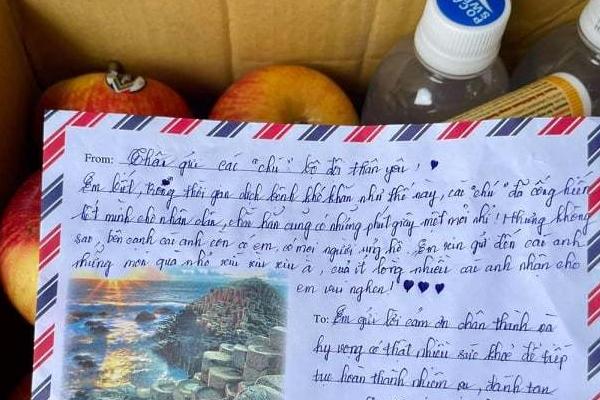 POCA
SWE
From: Thân gửi các "chú" bộ đội thân yêu! ♥
Em biết, trong thời gian dịch bệnh khó khăn như thế này, các "chú" đã cống hiến
hết mình cho nhân dân, chắc hẳn cũng có những phút giây mệt mỏi nhỉ! Nhưng không
sao, bên cạnh các anh còn có em, có mọi người ủng hộ. Em xin gửi đến các anh
những món quà nhỏ xíu xiu xiu ạ, của ít lòng nhiều các anh nhận cho
em vui nghen! ♥♥♥
To: Em gửi lời cảm ơn chân thành và
hy vọng có thật nhiều sức khoẻ để tiếp
tục hoàn thành nhiệm vụ, đánh tan